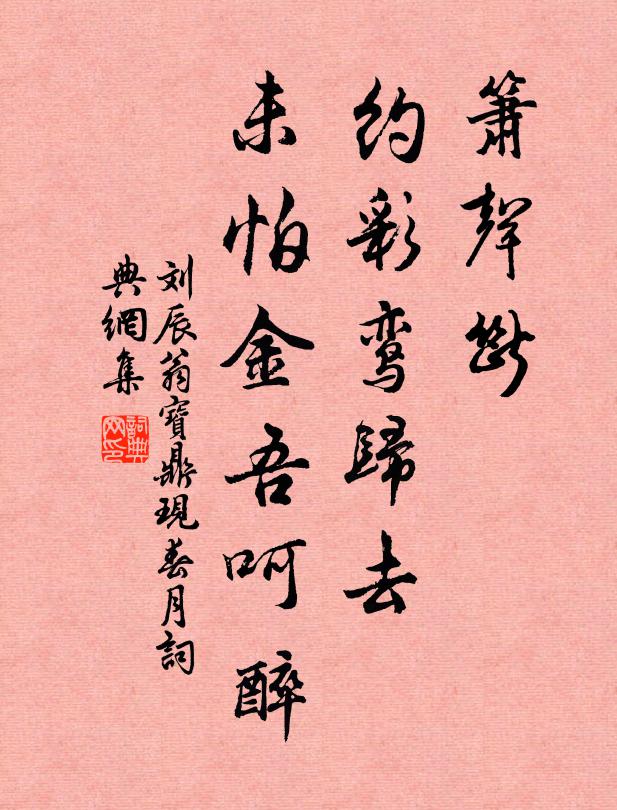 簫聲斷
約彩鸾歸去
未怕金吾呵醉
刘辰翁寶鼎現春月詞
典網集
詞典网印